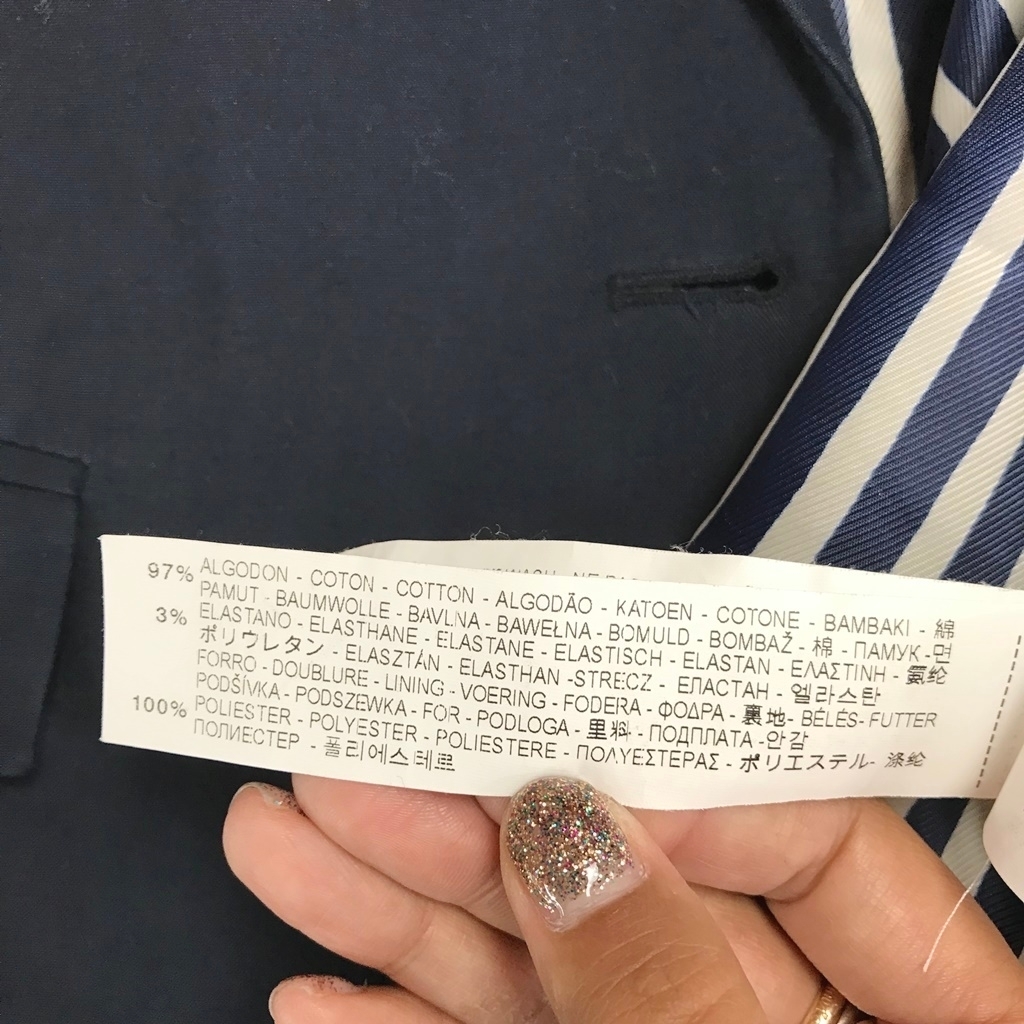 97% ALGODON - COTON - COTTON - ALGODÃO - KATOEN - COTONE - BAMBAKI - 綿
PAMUT - BAUMWOLLE - BAVLNA - BAWEŁNA - BOMULD - BOMBAŽ - 棉 - ПАМУК - 면
3% ELASTANO - ELASTHANE - ELASTANE - ELASTISCH - ELASTAN - ΕΛΑΣΤΙΝΗ - 氨纶
ポリウレタン - ELASZTÁN - ELASTHAN - STRECZ - ЕПАСТАН - 엘라스탄
FORRO - DOUBLURE - LINING - VOERING - FODERA - ΦΟΔΡΑ - 裏地 - BÉLÉS - FUTTER
PODŠÍVKA - PODSZEWKA - FOR - PODLOGA - 里料 - ПОДПЛАТА - 안감
100% POLIESTER - POLYESTER - POLIESTERE - ΠΟΛΥΕΣΤΕΡΑΣ - ポリエステル - 涤纶
ПОЛИЕСТЕР - 폴리에스테르